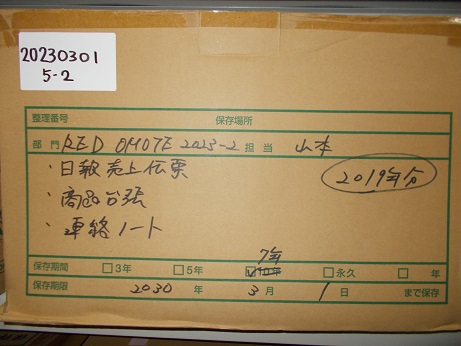 20230301
5-2
整理番号 保存場所
部門 RED OMOTE 2023-2 担当 山本
・日報売上伝票 2019年分
・商品台張
・連絡ノート
7年
保存期間 □3年 □5年 ☑10年 □永久 □ 年
保存期限 2030 年 3 月 1 日 まで保存